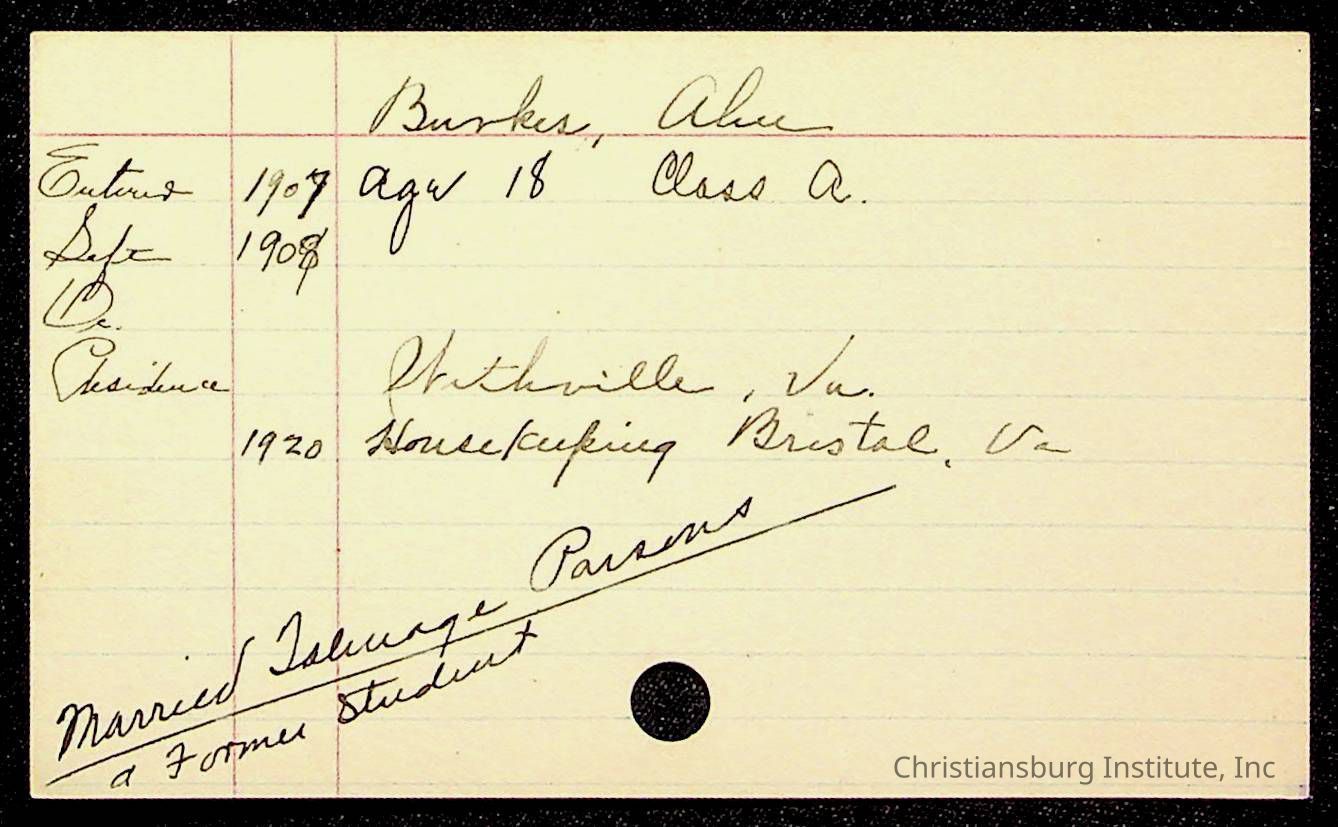 Burkes, Alice
Entered 1907 age 18 Class A.
Left 1908
Oc.
Residence Wythville, Va.
1920 Housekeeping Bristol, Va
Married Talmage Parsons
a Former Student
Christiansburg Institute, Inc